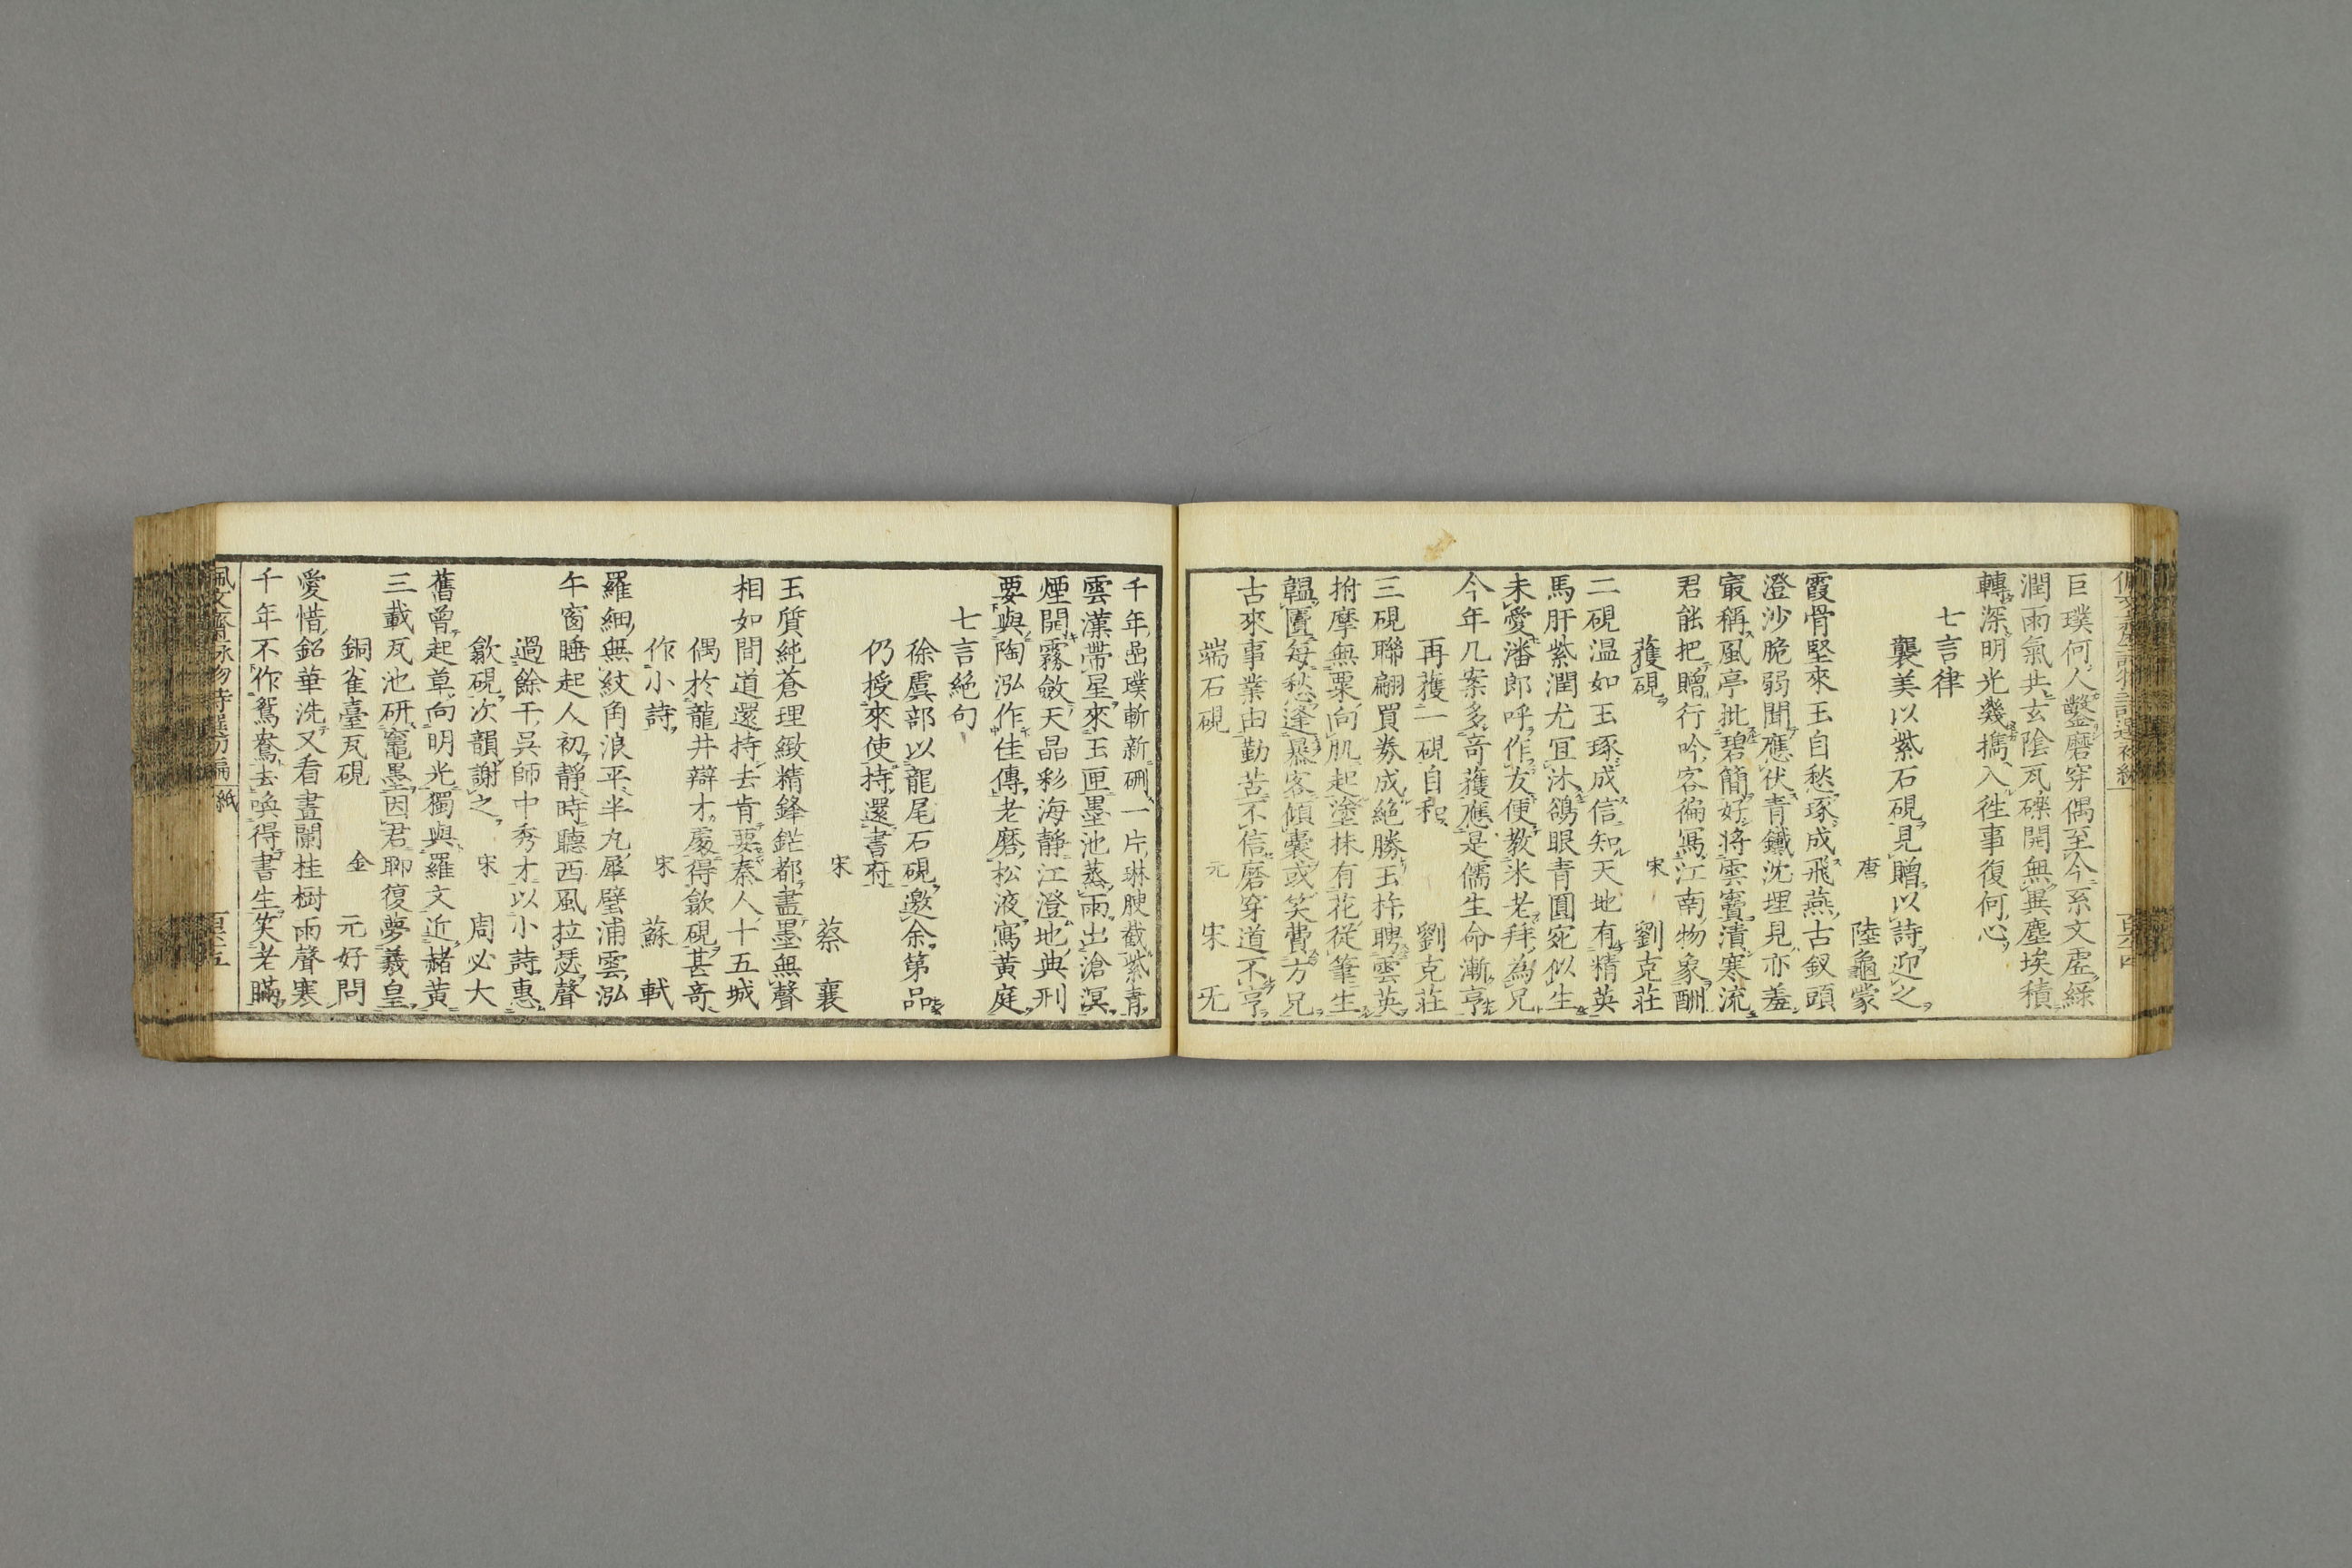 巨璞何人鑿磨穿偶至今系文虛綠
潤雨氣共玄陰瓦礫開無異塵埃積
轉深明光幾擕入徃事復何心
七言律
襲美以紫石硯見贈以詩迎之
唐 陸龜蒙
霞骨堅來玉自愁琢成飛燕古釵頭
澄沙脆弱聞應伏青鐵沈埋見亦羞
最稱風亭批碧簡好將雲竇漬寒流
君能把贈行吟客徧寫江南物象酬
蓃硯 宋 劉克莊
二硯温如玉琢成信知天地有精英
馬肝紫潤尤宜沐鴝眼青圓宛似生
未愛潘郎呼作友便教米老拜為兄
今年几案多竒獲應是儒生命漸亨
再蓃一硯自和 劉克莊
三硯聯翩買券成絶勝玉杵聘雲英
拊摩無粟向肌起塗抹有花從筆生
韞匱每愁逢暴客傾囊或笑費方兄
古來事業由勤苦不信磨穿道不亨
端石硯 元 宋 旡
千年嵒璞斬新硎一片琳腴截紫青
雲漢帶星來玉匣墨池蒸雨出滄溟
煙開霧斂天晶彩海靜江澄地典刑
要與陶泓作佳傳老磨松液寫黄庭
七言絶句
徐虞部以龍尾石硯邀余第品
仍授來使持還書府
宋 蔡 襄
玉質純蒼理緻精鋒鋩都盡墨無聲
相如間道還持去肯要秦人十五城
偶於龍井辯才處得歙硯甚竒
作小詩 宋 蘇 軾
羅細無紋角浪平半丸犀璧浦雲泓
午窗睡起人初靜時聽西風拉瑟聲
過餘干吳師中秀才以小詩惠
歙硯次韻謝之 宋 周必大
舊曾起草向明光獨與羅文近赭黄
三載瓦池研竈墨因君聊復夢羲皇
銅雀臺瓦硯 金 元好問
愛惜鉛華洗又看畫闌桂樹雨聲寒
千年不作鴛鴦去喚得書生笑老瞞
佩文齋詠物詩選初編 紙